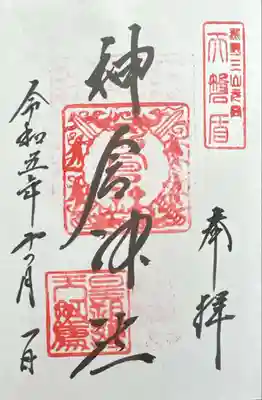 熊野三山元宮
天磐盾
奉拝
神倉神社
令和五年 月 一日